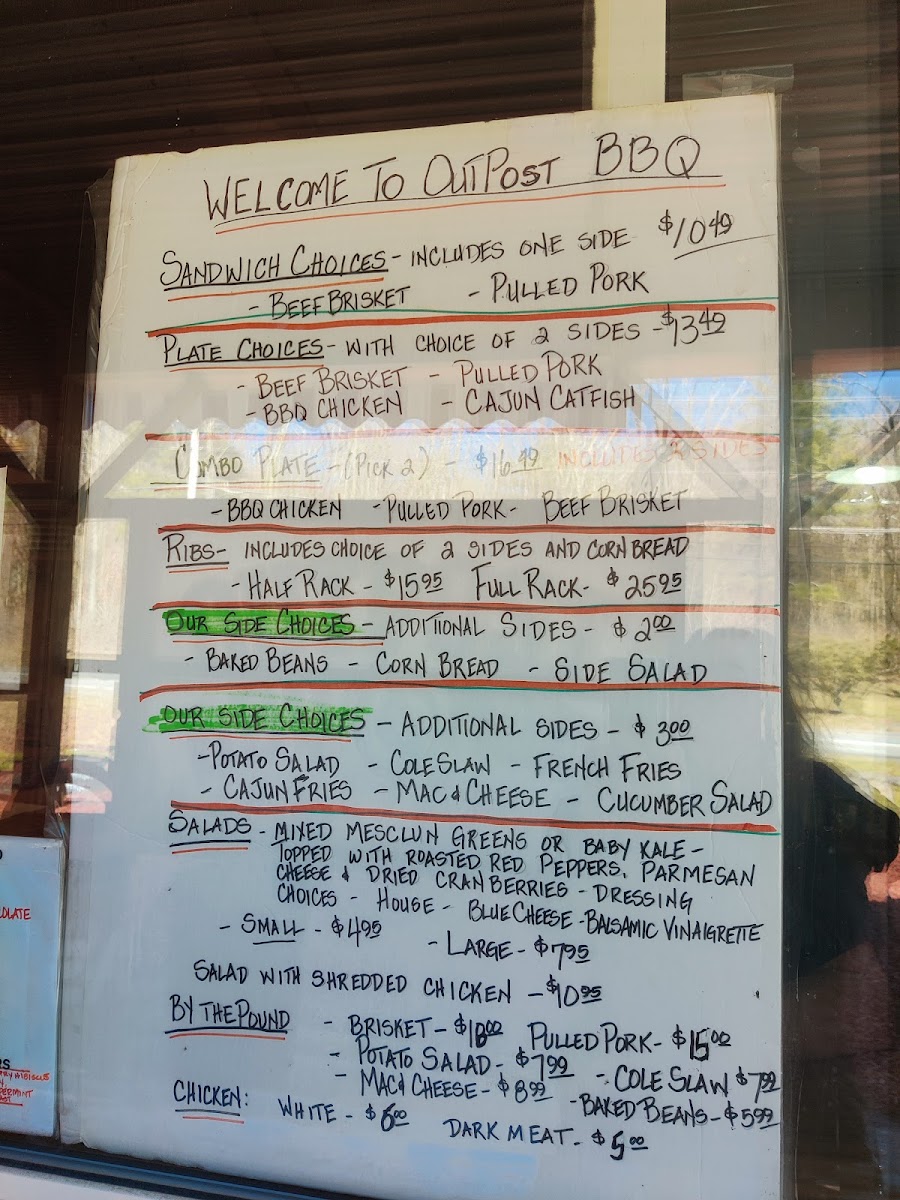 WELCOME TO OUTPOST BBQ
SANDWICH CHOICES - INCLUDES ONE SIDE $10.49
- BEEF BRISKET - PULLED PORK
PLATE CHOICES - WITH CHOICE OF 2 SIDES - $13.49
- BEEF BRISKET - PULLED PORK
- BBQ CHICKEN - CAJUN CATFISH
COMBO PLATE - (PICK 2) - $16.49 INCLUDES 2 SIDES
- BBQ CHICKEN - PULLED PORK - BEEF BRISKET
RIBS - INCLUDES CHOICE OF 2 SIDES AND CORN BREAD
- HALF RACK - $15.95 FULL RACK - $25.95
OUR SIDE CHOICES - ADDITIONAL SIDES - $2.00
- BAKED BEANS - CORN BREAD - SIDE SALAD
OUR SIDE CHOICES - ADDITIONAL SIDES - $3.00
- POTATO SALAD - COLE SLAW - FRENCH FRIES
- CAJUN FRIES - MAC & CHEESE - CUCUMBER SALAD
SALADS - MIXED MESCLUN GREENS OR BABY KALE -
TOPPED WITH ROASTED RED PEPPERS, PARMESAN
CHEESE & DRIED CRANBERRIES - DRESSING
CHOICES - HOUSE - BLUE CHEESE - BALSAMIC VINAIGRETTE
- SMALL - $4.95
- LARGE - $7.95
SALAD WITH SHREDDED CHICKEN - $10.95
BY THE POUND - BRISKET - $18.00 PULLED PORK - $15.00
- POTATO SALAD - $7.99 - COLE SLAW $7.99
- MAC & CHEESE - $8.99 - BAKED BEANS - $5.99
CHICKEN: WHITE - $6.00 DARK MEAT - $5.00